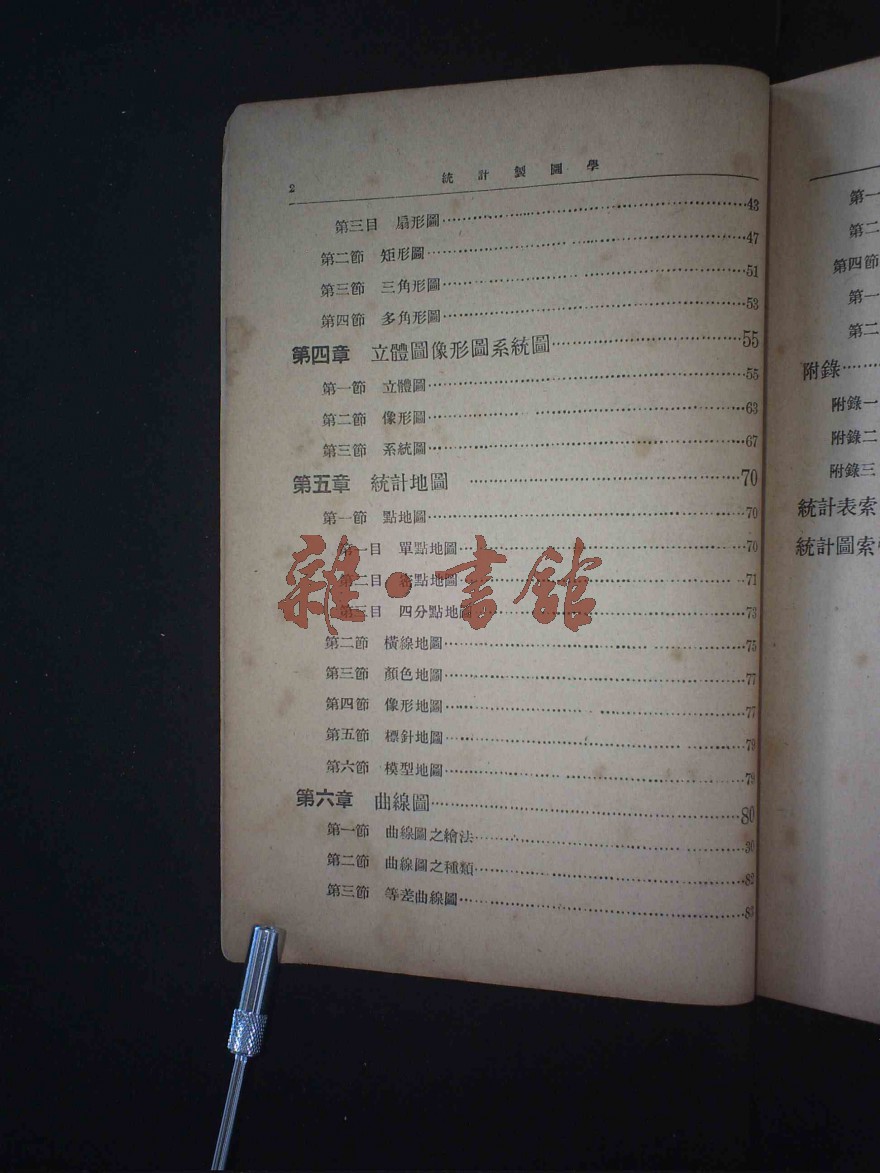 2 統計製圖學
第三目 扇形圖 43
第二節 矩形圖 47
第三節 三角形圖 51
第四節 多角形圖 53
第四章 立體圖像形圖系統圖 55
第一節 立體圖 55
第二節 像形圖 63
第三節 系統圖 67
第五章 統計地圖 70
第一節 點地圖 70
第一目 單點地圖 70
第二目 密點地圖 71
第三目 四分點地圖 73
第二節 橫線地圖 75
第三節 顏色地圖 77
第四節 像形地圖 77
第五節 標針地圖 79
第六節 模型地圖 79
第六章 曲線圖 80
第一節 曲線圖之繪法 80
第二節 曲線圖之種類 82
第三節 等差曲線圖 83
雜·書館
第一
第二
第四節
第一
第二
附錄
附錄一
附錄二
附錄三
統計表索
統計圖索